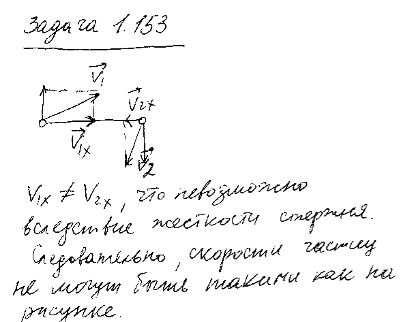 Задача 1.153
V⃗₁
V⃗₂ₓ
V⃗₁ₓ
V⃗₂
V₁ₓ ≠ V₂ₓ, что невозможно
вследствие жесткости стержня.
Следовательно, скорости частиц
не могут быть такими как на
рисунке.